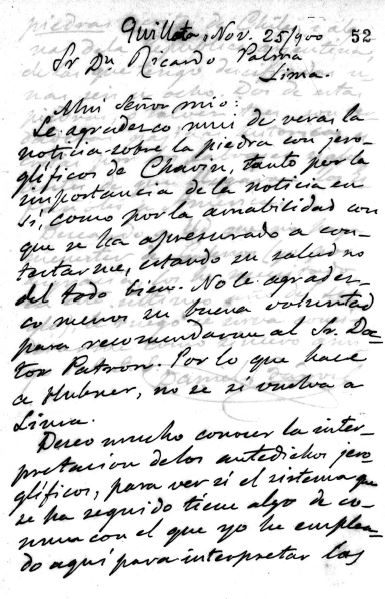 Quillota, Nov. 25/900 52
Sr Dn Ricardo Palma
Lima.
Mui Señor mio:
Le agradesco mui de veras la
noticia sobre la piedra con jero-
glíficos de Chavin, tanto por la
importancia de la noticia en
sí, como por la amabilidad con
que se ha apresurado a con-
testarme, estando su salud no
del todo bien. No le agrades-
co menos su buena voluntad
para recomendarme al Sr. Doc-
tor Patron. Por lo que hace
a Hubner, no se si vuelva a
Lima.
Deseo mucho conocer la inter-
pretacion de los antedichos jero-
glíficos, para ver si el sistema que
se ha seguido tiene algo de co-
mun con el que yo he emplea-
do aquí para interpretar los